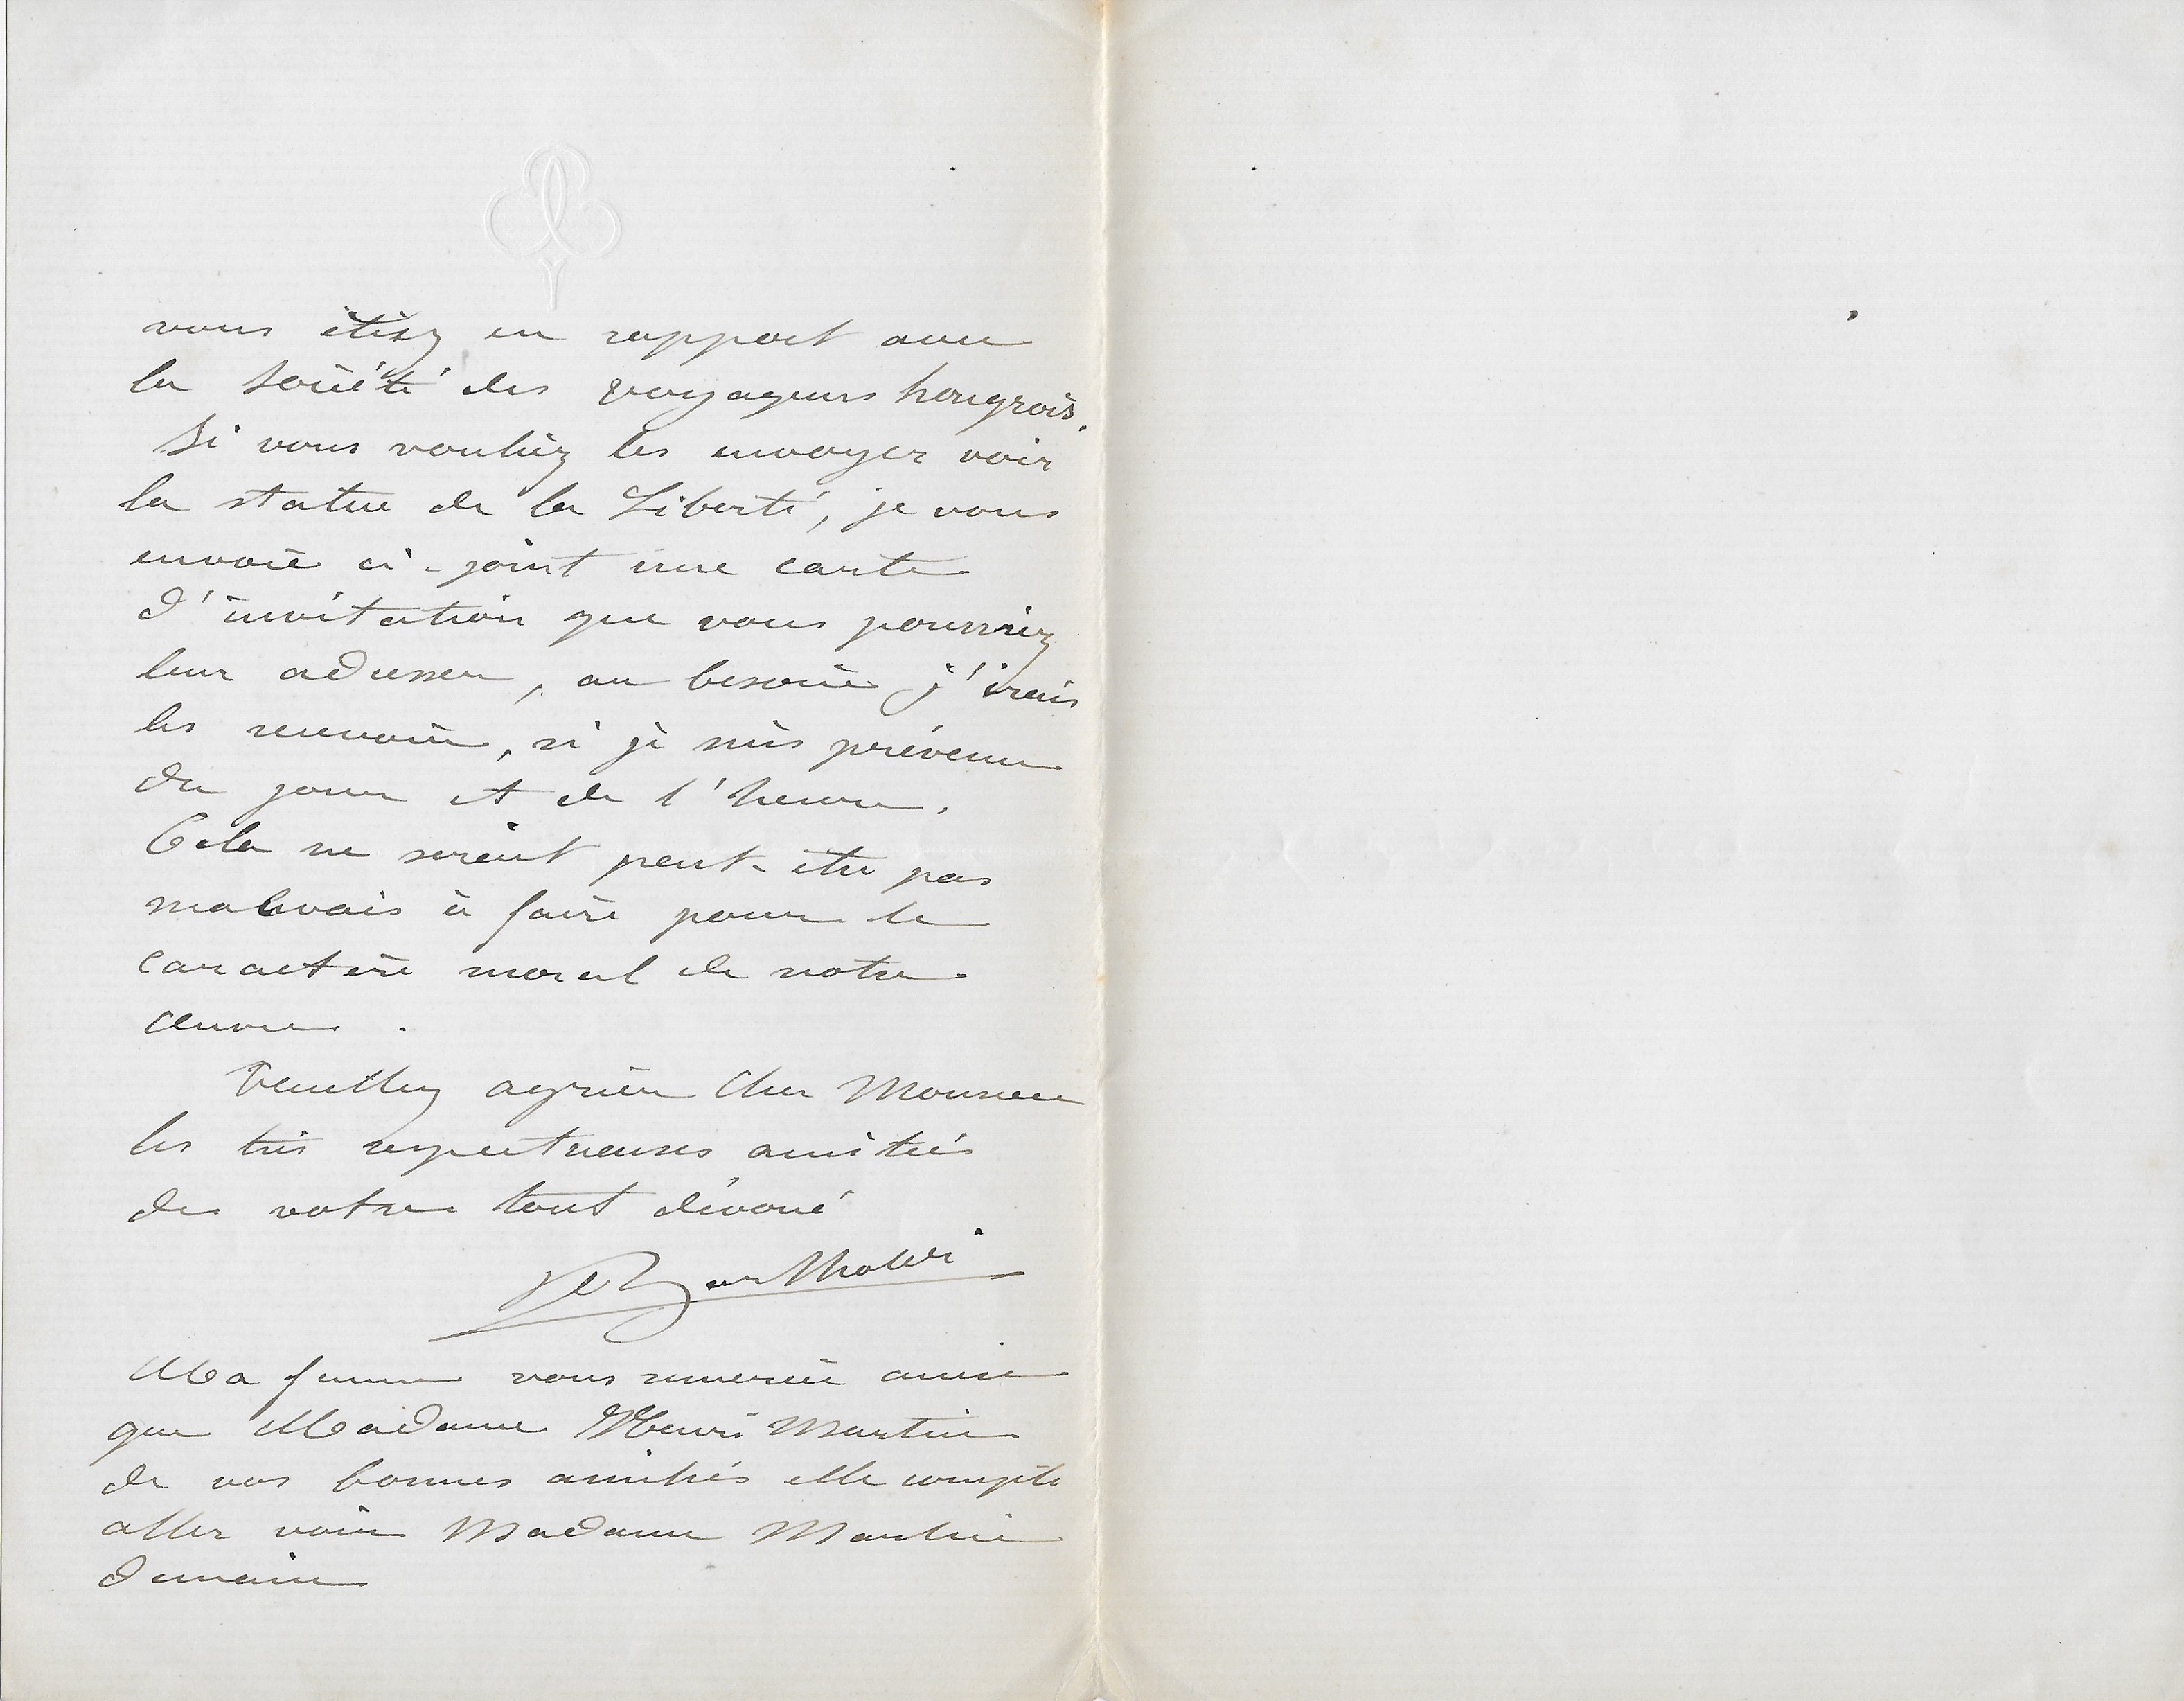 vous étiez en rapport avec
la société des voyageurs hongrois.
Si vous vouliez les envoyer voir
la statue de la Liberté, je vous
envoie ci-joint une carte
d'invitation que vous pourriez
leur adresser, au besoin j'irais
les recevoir, si je suis prévenu
du jour et de l'heure.
Cela ne serait peut-être pas
mauvais à faire pour le
caractère moral de notre
œuvre.
Veuillez agréer Cher Monsieur
les très respectueuses amitiés
de votre tout dévoué
Bartholdi
Ma femme vous remercie ainsi
que Madame Henri Martin
de vos bonnes amitiés elle compte
aller voir Madame Martin
demain